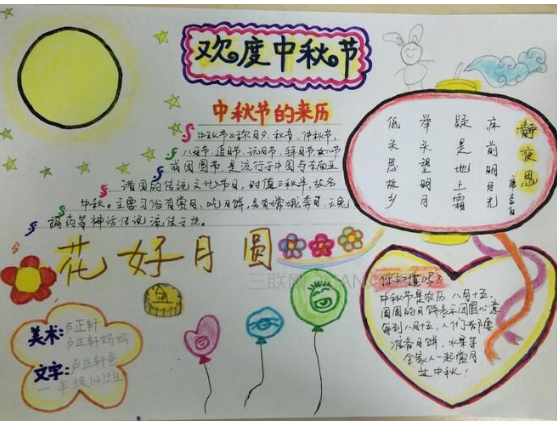 欢度中秋节
中秋节的来历
中秋节又称月夕、秋节、仲秋节、
八月节、追月节、玩月节、拜月节、女儿节
或团圆节,是流行于中国与
诸国的传统文化节日,时值三秋半,故名
中秋。主要习俗有赏月、吃月饼,有嫦娥奔月、玉兔
捣药等神话传说流传
静夜思
唐 李白
床前明月光
疑是地上霜
举头望明月
低头思故乡
花好月圆
三联网
你知道吗?
中秋节是农历八月十五,
圆圆的月饼表示团圆心意
每到八月十五,人们
准备月饼、水果等
全家人一起赏月
过中秋!
美术:卢正轩
卢正轩妈妈
文字:卢正轩爸
一年级